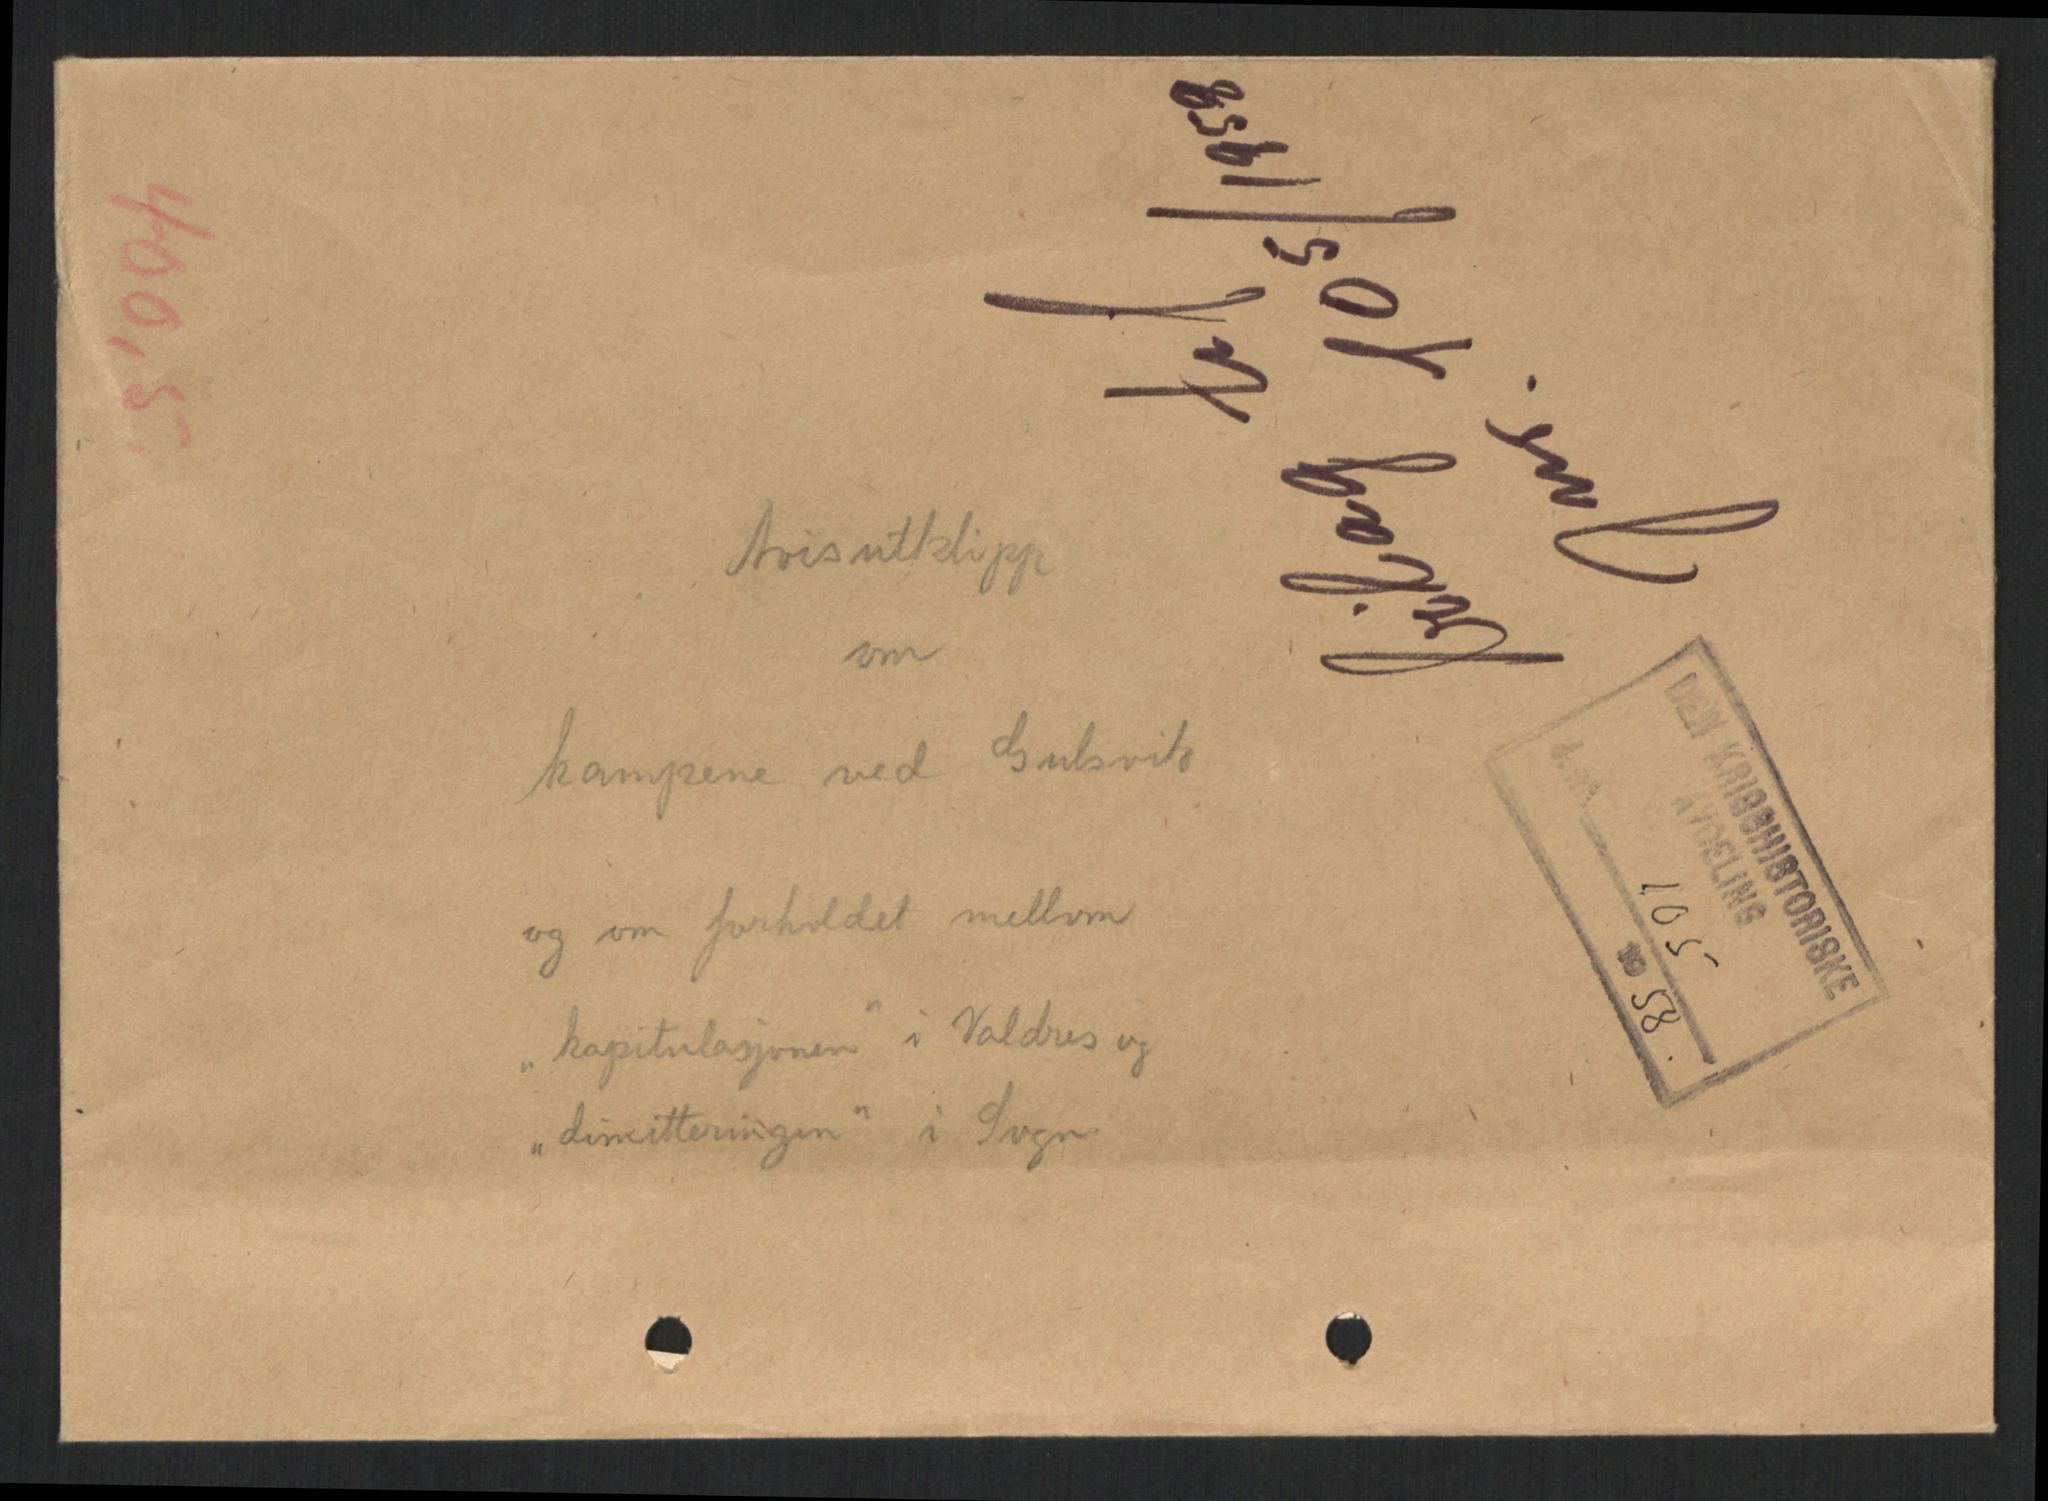 400.5
Avisutklipp
om
kampene ved Gulsvik
og om forholdet mellom
„kapitulasjonen" i Valdres og
„dimitteringen" i Sogn
Jnr.
105/1958
DEN KRIGSHISTORISKE
AVDELING
J. nr. 105
19 58.